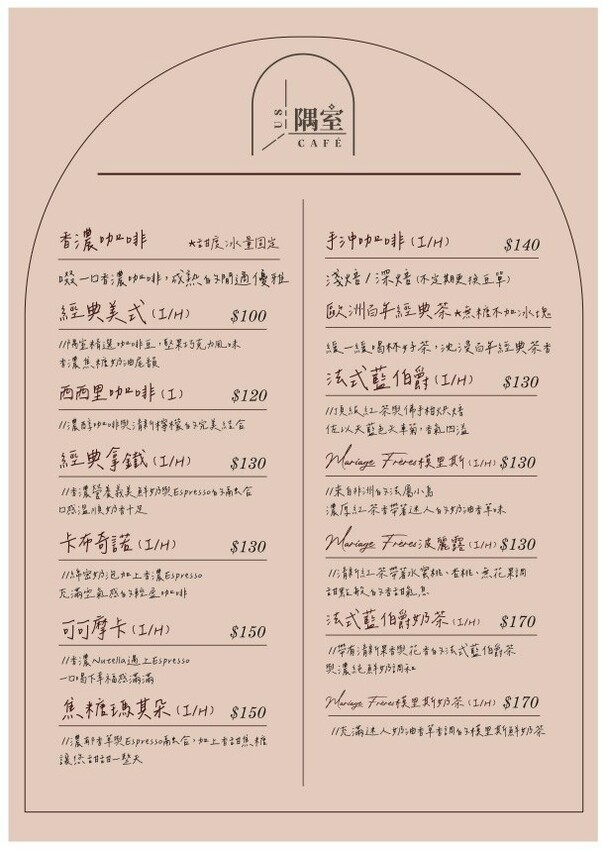 US
隅室
CAFÉ
香濃咖啡 *甜度冰量固定
啜一口香濃咖啡，成熟的閒適優雅
經典美式(I/H) $100
//隅室精選咖啡豆，堅果巧克力風味
香濃焦糖奶油尾韻
西西里咖啡(I) $120
//濃醇咖啡與清新檸檬的完美結合
經典拿鐵(I/H) $130
//香濃營養義美鮮奶與Espresso的融合
口感溫順奶香十足
卡布奇諾(I/H) $130
//綿密奶泡加上香濃Espresso
充滿空氣感的輕盈咖啡
可可摩卡(I/H) $150
//香濃Nutella遇上Espresso
一口喝下幸福感滿滿
焦糖瑪其朵(I/H) $150
//濃郁香草與Espresso融合，加上香甜焦糖
讓您甜甜一整天
手沖咖啡(I/H) $140
淺焙/深焙(不定期更換豆單)
歐洲百年經典茶*無糖不加冰塊
緩一緩喝杯好茶，沈浸百年經典茶香
法式藍伯爵(I/H) $130
//頂級紅茶與佛手柑烘焙
佐以天藍色矢車菊，香氣四溢
Mariage Frères模里斯(I/H) $130
//來自非洲的法屬小島
濃厚紅茶香帶著迷人的奶油香草味
Mariage Frères波麗露(I/H) $130
//清新紅茶帶著水蜜桃、香桃、無花果調
甜點般的香甜氣息
法式藍伯爵奶茶(I/H) $170
//帶有清新果香與花香的法式藍伯爵茶
與濃純鮮奶調和
Mariage Frères模里斯奶茶(I/H) $170
//充滿迷人奶油香草香調的模里斯鮮奶茶